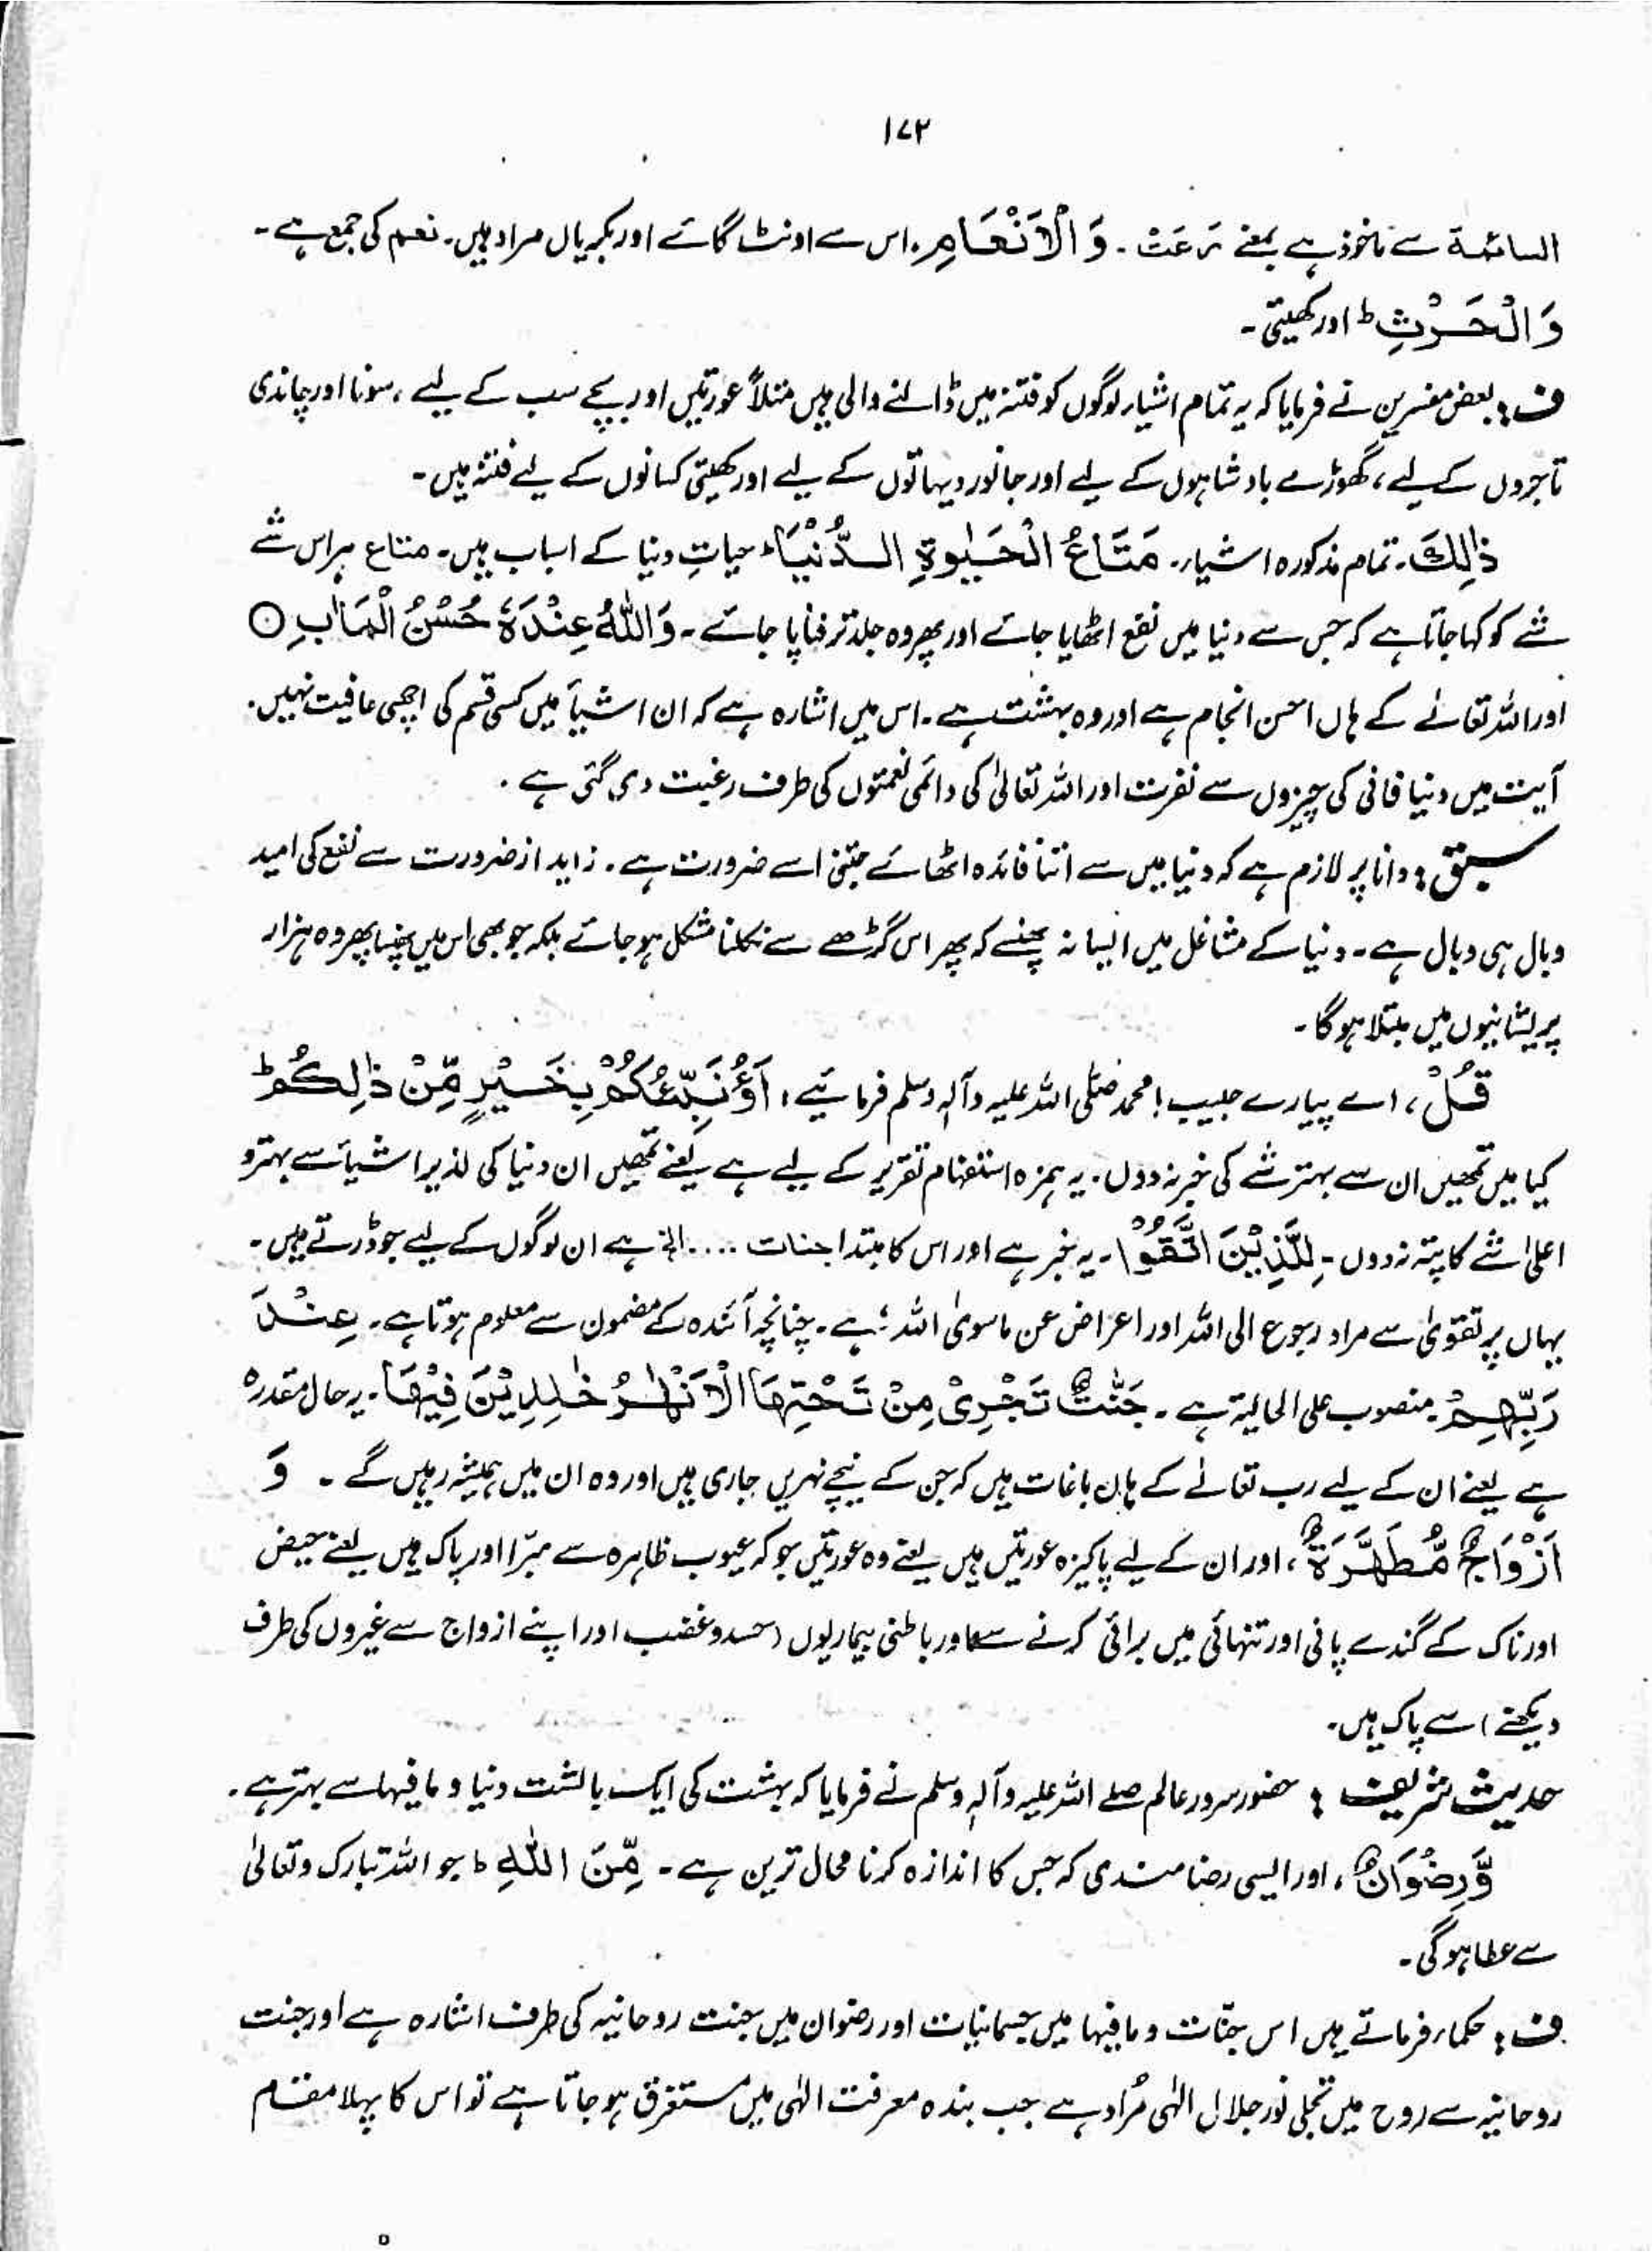 ۱۷۲
السائمۃ سے ماخوذ ہے بمعنے رَعَتْ ۔ وَ الْاَنْعَامِ، اس سے اونٹ گائے اور بکریاں مراد ہیں۔ نعم کی جمع ہے ۔
وَ الْحَرْثِ ؕ اور کھیتی ۔
ف : بعض مفسرین نے فرمایا کہ یہ تمام اشیاء لوگوں کو فتنہ میں ڈالنے والی ہیں مثلاً عورتیں اور بچے سب کے لیے ، سونا اور چاندی
تاجروں کے لیے ، گھوڑے بادشاہوں کے لیے اور جانور دیہاتوں کے لیے اور کھیتی کسانوں کے لیے فتنہ میں ۔
ذٰلِکَ ۔ تمام مذکورہ اشیاء ۔ مَتَاعُ الْحَیٰوۃِ الدُّنْیَا ۚ حیاتِ دنیا کے اسباب ہیں۔ متاع ہر اس شے
شے کو کہا جاتا ہے کہ جس سے دنیا میں نفع اٹھایا جائے اور پھر وہ جلد تر فنا پا جائے ۔ وَاللّٰہُ عِنْدَہٗ حُسْنُ الْمَاٰبِ ○
اور اللہ تعالےٰ کے ہاں احسن انجام ہے اور وہ بہشت ہے ۔ اس میں اشارہ ہے کہ ان اشیآ میں کسی قسم کی اچھی عافیت نہیں ۔
آیت میں دنیا فانی کی چیزوں سے نفرت اور اللہ تعالیٰ کی دائمی نعمتوں کی طرف رغبت دی گئی ہے ۔
سبق : دانا پر لازم ہے کہ دنیا میں سے اتنا فائدہ اٹھائے جتنی اسے ضرورت ہے ۔ زاید از ضرورت سے نفع کی امید
وبال ہی وبال ہے ۔ دنیا کے مشاغل میں ایسا نہ پھنسے کہ پھر اس گڑھے سے نکلنا مشکل ہو جائے بلکہ جو بھی اس میں پھنسا پھر وہ ہزار
پریشانیوں میں مبتلا ہو گا ۔
قُلْ ، اے پیارے حبیب ! محمد صلّی اللہ علیہ وآلہٖ وسلم فرمائیے ، اَؤُنَبِّئُکُمْ بِخَیْرٍ مِّنْ ذٰلِکُمْ ؕ
کیا میں تمھیں ان سے بہتر شے کی خبر نہ دوں ۔ یہ ہمزہ استفہام تقریر کے لیے ہے یعنے تمھیں ان دنیا کی لذیز اشیائے سے بہتر و
اعلیٰ شے کا پتہ نہ دوں ۔ لِلَّذِیْنَ اتَّقَوْا ۔ یہ خبر ہے اور اس کا مبتدا جنات .... الخ ہے ان لوگوں کے لیے جو ڈرتے ہیں ۔
یہاں پر تقویٰ سے مراد رجوع الی اللہ اور اعراض عن ماسویٰ اللہ ہے ۔ چنانچہ آئندہ کے مضمون سے معلوم ہوتا ہے ۔ عِنْدَ
رَبِّہِمْ ۔ منصوب علی الحالیۃ ہے ۔ جَنّٰتٌ تَجْرِیْ مِنْ تَحْتِہَا الْاَنْہٰرُ خٰلِدِیْنَ فِیْہَا ۔ یہ حال مقدرہ
ہے یعنے ان کے لیے رب تعالےٰ کے ہاں باغات ہیں کہ جن کے نیچے نہریں جاری ہیں اور وہ ان میں ہمیشہ رہیں گے ۔ وَ
اَزْوَاجٌ مُّطَہَّرَۃٌ ، اور ان کے لیے پاکیزہ عورتیں ہیں یعنے وہ عورتیں جو کہ عیوب ظاہرہ سے مبرّا اور پاک ہیں یعنے حیض
اور ناک کے گندے پانی اور تنہائی میں برائی کرنے سے اور باطنی بیماریوں (حسد و غضب اور اپنے ازواج سے غیروں کی طرف
دیکھنے) سے پاک ہیں ۔
حدیث شریف : حضور سرور عالم صلے اللہ علیہ وآلہٖ وسلم نے فرمایا کہ بہشت کی ایک بالشت دنیا و ما فیہا سے بہتر ہے ۔
وَّ رِضْوَانٌ ، اور ایسی رضا مندی کہ جس کا اندازہ کرنا محال ترین ہے ۔ مِّنَ اللّٰہِ ؕ جو اللہ تبارک و تعالیٰ
سے عطا ہو گی ۔
ف : حکماء فرماتے ہیں اس جنّات و ما فیہا میں جسمانیات اور رضوان میں جنت روحانیہ کی طرف اشارہ ہے اور جنت
روحانیہ سے روح میں تجلی نور جلال الٰہی مُراد ہے جب بندہ معرفت الٰہی میں مستغرق ہو جاتا ہے تو اس کا پہلا مقام